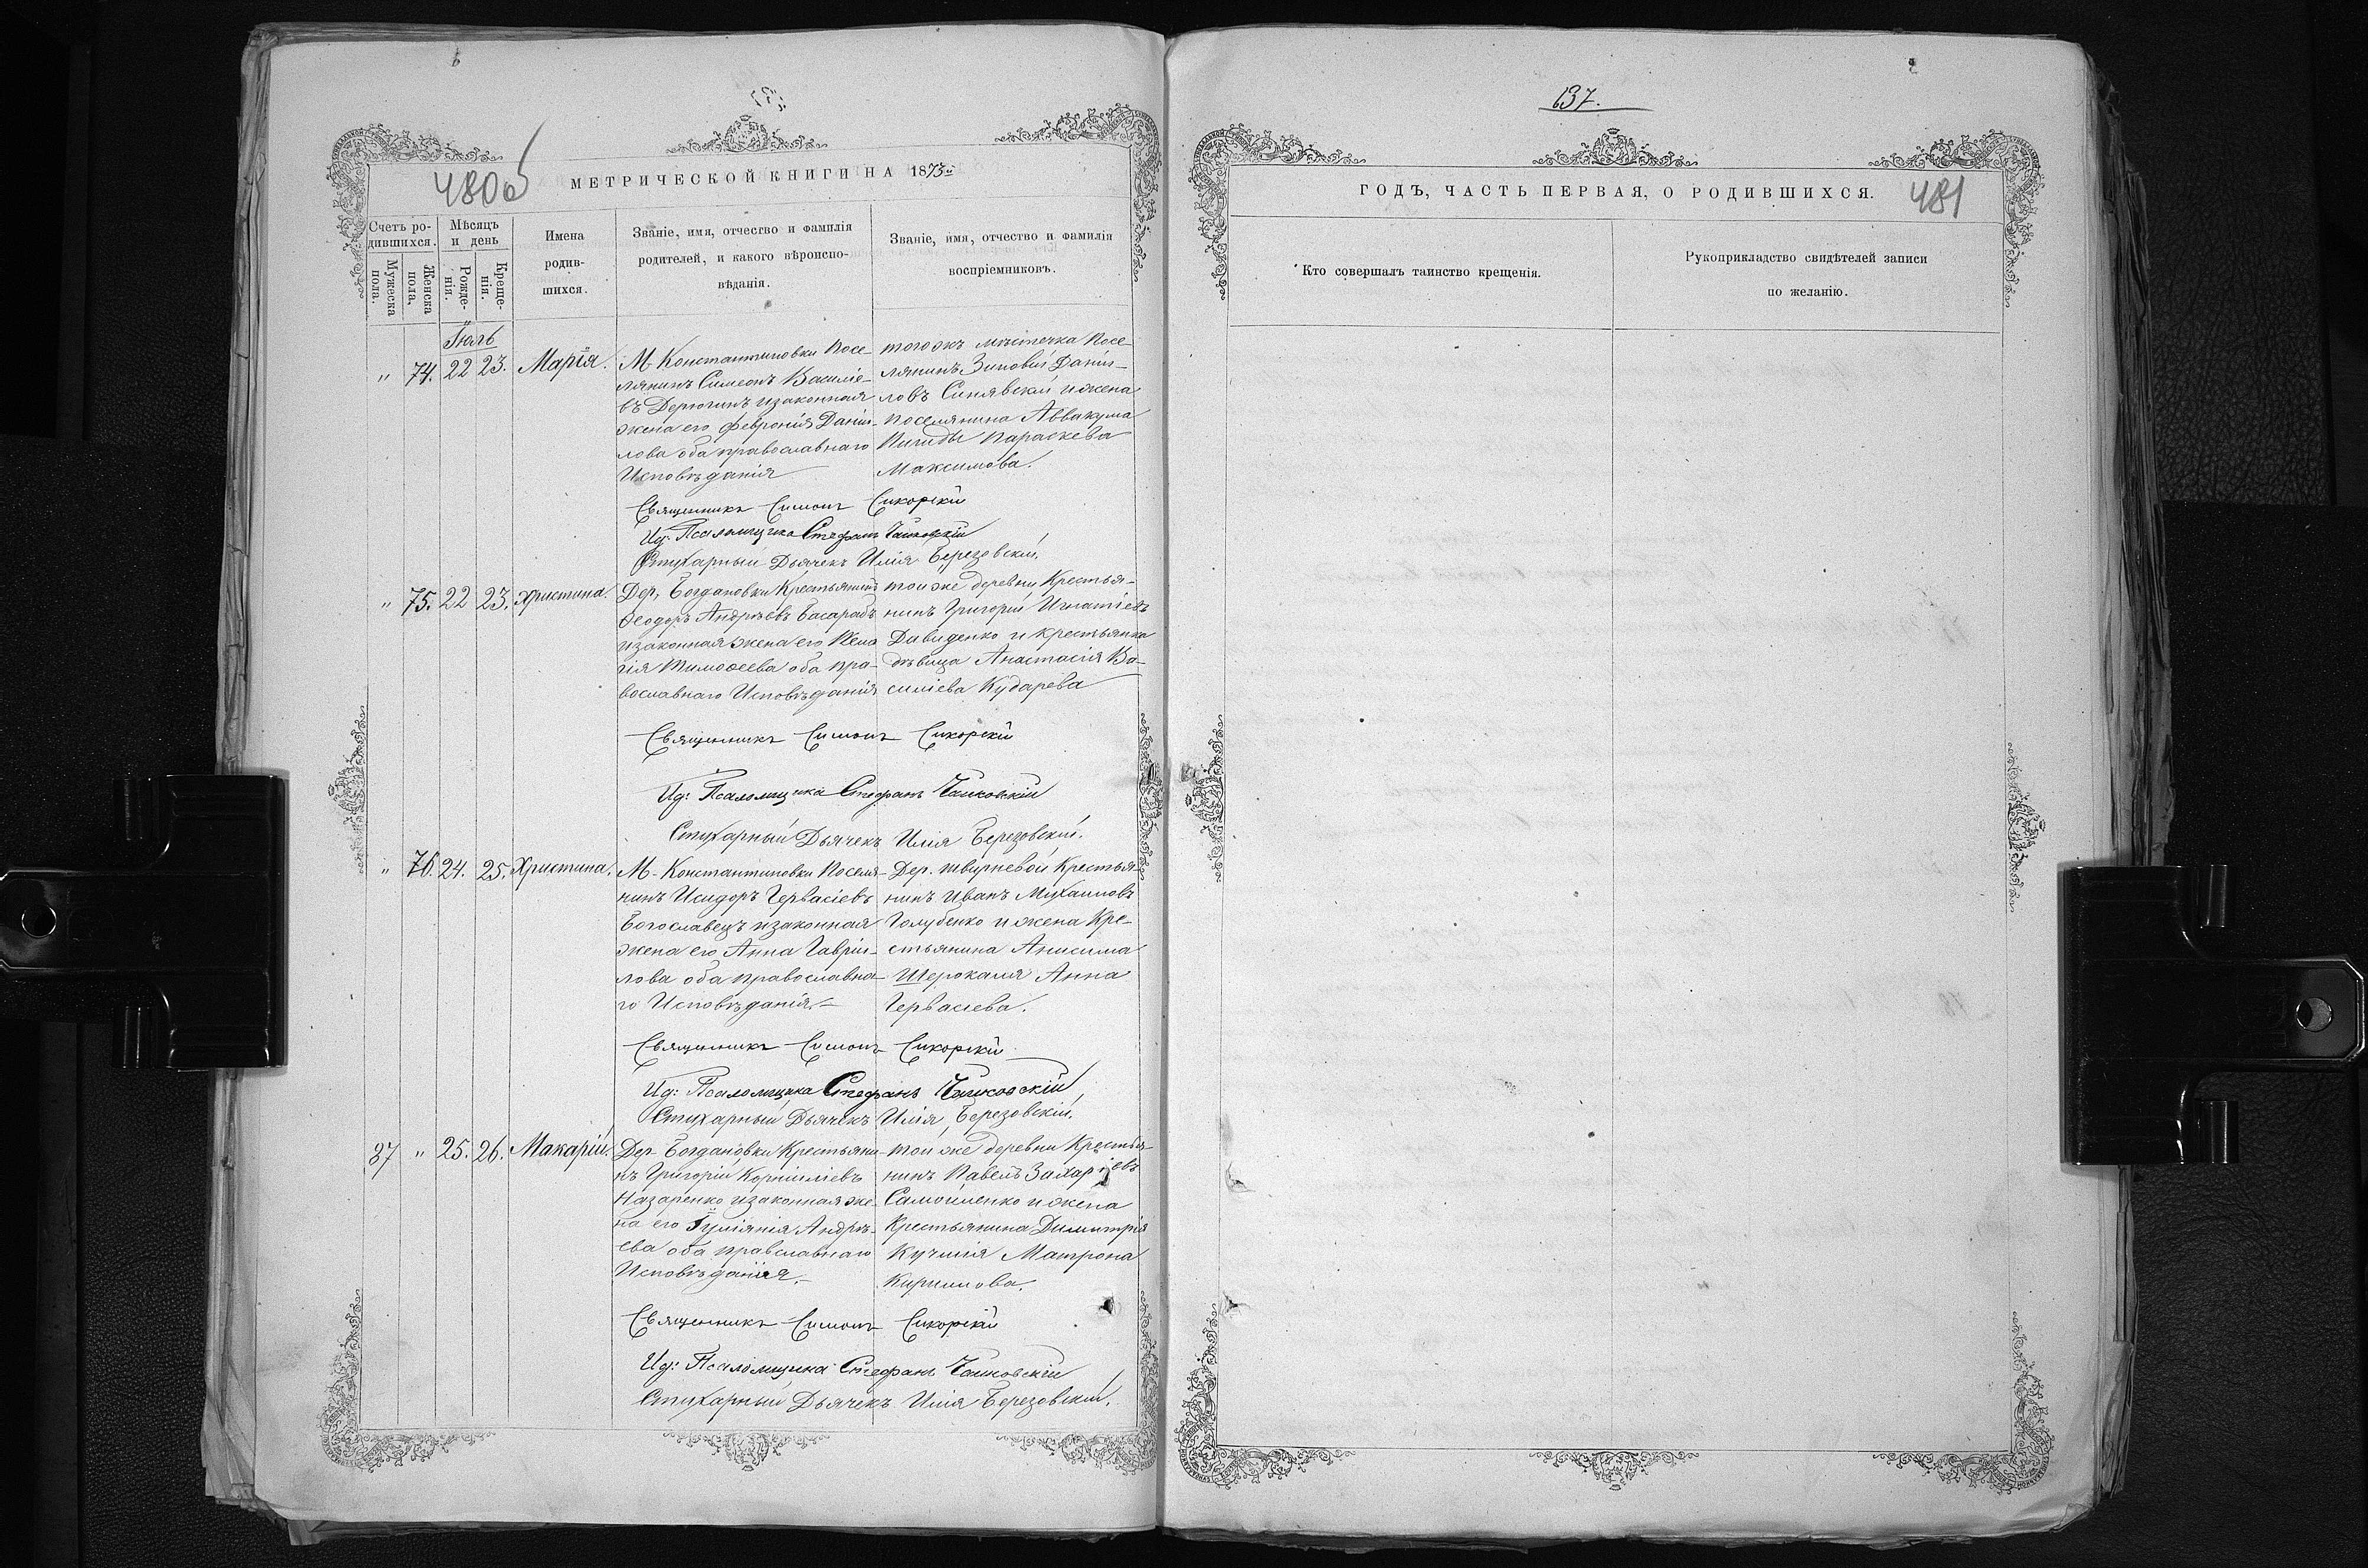 480об
МЕТРИЧЕСКОЙ КНИГИ НА 1873й
Счетъ родившихся.
Мужеска пола.
Женска пола.
Мѣсяцъ и день
Рожденія.
Крещенія.
Имена родившихся.
Званіе, имя, отчество и фамилія
родителей, и какого вѣроиспо-
вѣданія.
Званіе, имя, отчество и фамилія
воспріемниковъ.
Іюль
" 74. 22 23. Марія.
М. Константиновки Посе-
лянинъ Симеонъ Василіе-
въ Дерюгинъ и законная
жена его Февронія Даніи-
лова оба православнаго
Исповѣданія
тогожъ мѣстечка Посе-
лянинъ Зиновій Даніи-
ловъ Синявскій и жена
поселянина Аввакума
Параскева
Максимова.
Священникъ Симонъ Сикорскій
Ид: Псаломщика Стефанъ Чайковскій
Стихарный Дьячекъ Илія Березовскій.
" 75. 22 23. Христина.
Дер. Богдановки Крестьянинъ
Ѳеодоръ Андрѣевъ Басарабъ
и законная жена его Ксе
нія Тимоѳеева оба пра-
вославнаго Исповѣданія
той же деревни Крестья-
нинъ Григорій Игнатіевъ
Давиденко и крестьянка
дѣвица Анастасія Ва-
силіева Кударева
Священникъ Симонъ Сикорскій
Ид: Псаломщика Стефанъ Чайковскій
Стихарный Дьячекъ Илія Березовскій.
" 76. 24. 25. Христина.
М. Константиновки Поселя-
нинъ Исидоръ Гервасіевъ
Богославецъ и законная
жена его Анна Гавріи-
лова оба православна-
го Исповѣданія.
Дер. Швирневой Крестья-
нинъ Иванъ Михаиловъ
Голубенко и жена Кре-
стьянина Анисима
Шерокалия Анна
Гервасіева.
Священникъ Симонъ Сикорскій
Ид: Псаломщика Стефанъ Чайковскій
Стихарный Дьячекъ Илія Березовскій.
37 " 25. 26. Макарій.
Дер. Богдановки Крестьяни-
нъ Григорій Корниліевъ
Назаренко и законная же-
на его Іуліянія Андрѣ-
ева оба православнаго
Исповѣданія.
той же деревни Крестья-
нинъ Павелъ Захаріевъ
Самойленко и жена
Крестьянина Димитрія
Кучмія Матрона
Кириллова.
Священникъ Симонъ Сикорскій
Ид: Псаломщика Стефанъ Чайковскій
Стихарный Дьячекъ Илія Березовскій.
637.
ГОДЪ, ЧАСТЬ ПЕРВАЯ, О РОДИВШИХСЯ.
481
Кто совершалъ таинство крещенія.
Рукоприкладство свидѣтелей записи
по желанію.